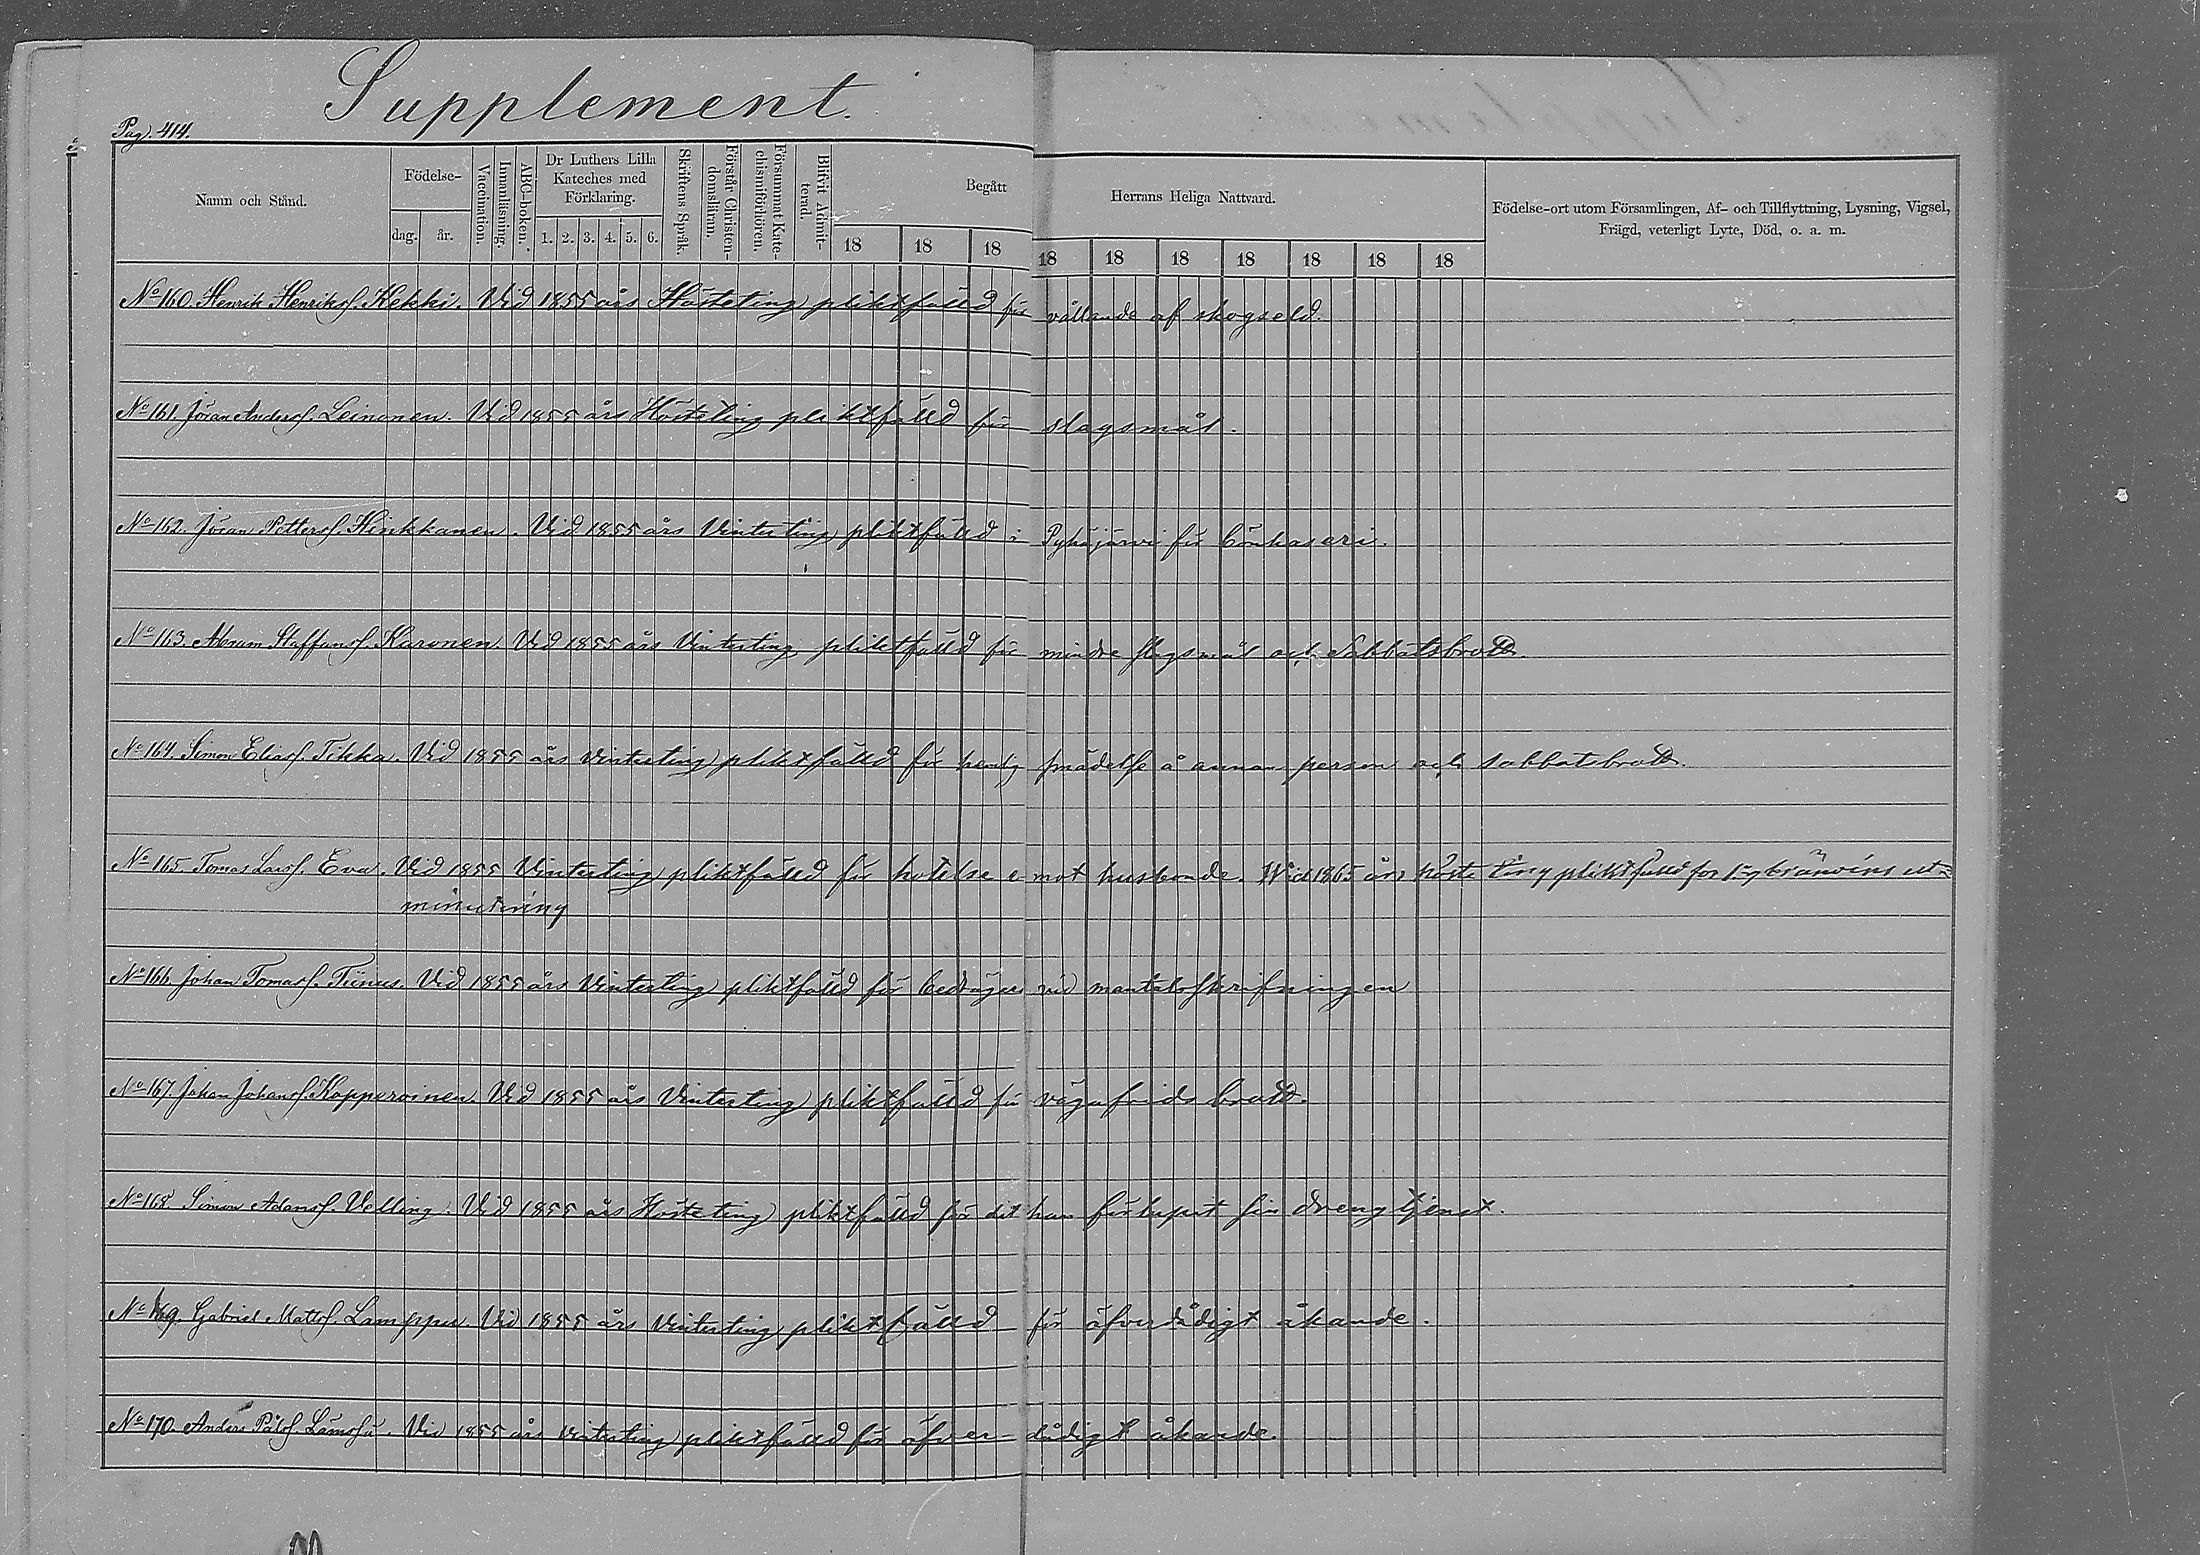 Supplement.
Pag. 414.
Namn och Stånd.
Födelse-
dag.
år.
Vaccination.
Innanläsning.
ABC-boken.
Dr Luthers Lilla
Kateches med
Förklaring.
1. 2. 3. 4. 5. 6.
Skriftens Språk.
Förstår Christen-
domslären.
Försummat Kate-
chismiförhören.
Blifvit Admit-
terad.
Begått
Herrans Heliga Nattvard.
18 18 18 18 18 18 18 18 18 18
Födelse-ort utom Församlingen, Af- och Tillflyttning, Lysning, Vigsel,
Frägd, veterligt Lyte, Död, o. a. m.
No 160. Henrik Henrikss. Kekki. Vid 1855 års Hösteting pliktfälld för vållande af skogseld.
No 161. Jöran Anderss. Leinonen. Vid 1855 års Hösteting pliktfälld för slagsmål.
No 162. Jöran Petterss. Hirkkanen. Vid 1855 års Vinterting pliktfälld i Pyhäjärvi för bönhaseri.
No 163. Abram Staffanss. Karonen. Vid 1855 års Vinterting pliktfälld för mindre slagsmål och Sabbatsbrott.
No 164. Simon Eliass. Tikka. Vid 1855 års Vinterting pliktfälld för hemlig smädelse å annan person och sabbatsbrott.
No 165. Tomas Larss. Eva. Vid 1855 Vinterting pliktfälld för hotelse emot husbonde. Wid 1865 års höste ting pliktfälld for bränvins ut=
minutering
No 166. Johan Tomass. Tiinus. Vid 1855 års Vinterting pliktfälld för bedrägeri vid mantalsskrifningen
No 167. Johan Johanss. Kopperoinen. Vid 1855 års Vinterting pliktfälld för vägafrids brott.
No 168. Simon Adamss. Velling. Vid 1855 års Hösteting pliktfälld för det han förlupit sin drengtjenst.
No 169. Gabriel Mattss. Lamppu. Vid 1855 års Vinterting pliktfälld för öfverdådigt åkande.
No 170. Anders Pålss. Lämsä. Vid 1855 års Vinterting pliktfälld för öfver-dådigt åkande.